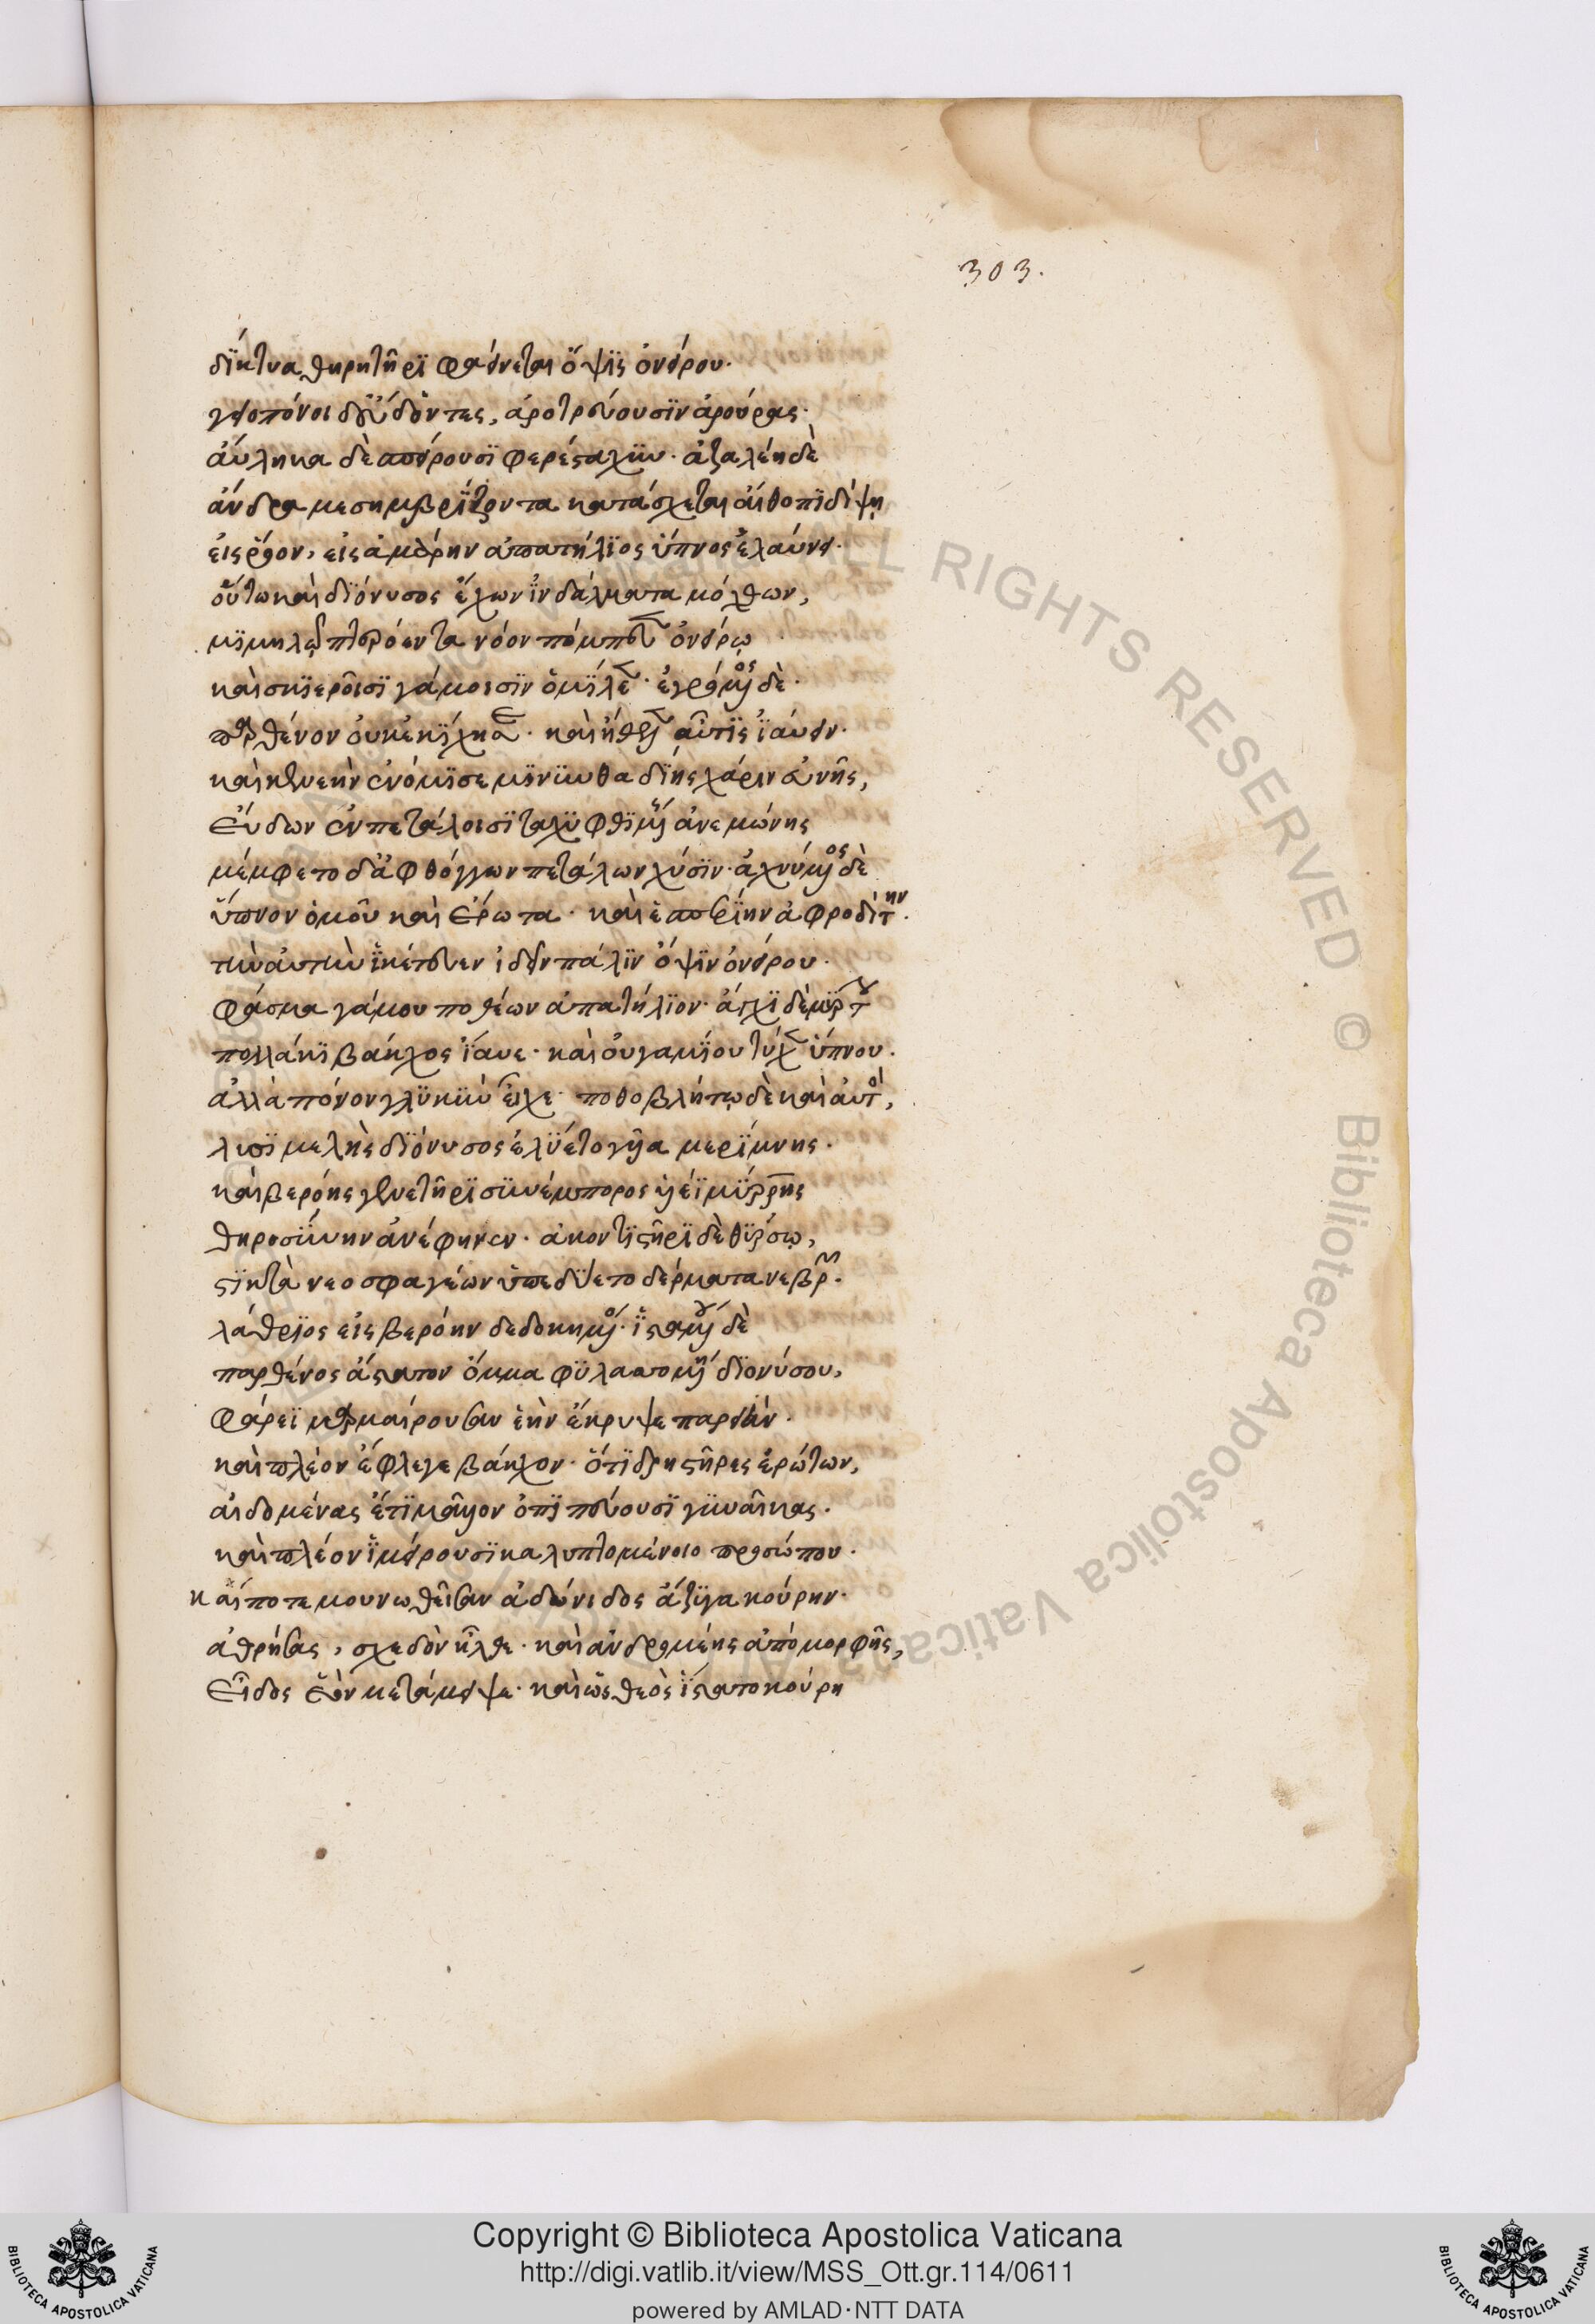 303.
δίκτυα θηρητῆρι φαίνεται ὄψις ὀνείρου.
γειοπόνοι δ' εὕδοντες, ἀροτρεύουσιν ἀρούρας.
αὔλακα δὲ σπείρουσι φερέσταχυν. ἀζαλέη δὲ
ἄνδρα μεσημβρίζοντα κατάσχεται αἴθοπι δίψῃ
εἰς ῥόον, εἰς ἀμάρην ἀπατήλιος ὕπνος ἐλαύνει.
οὕτω καὶ διόνυσος ἔχων ἰνδάλματα μόχθων,
μιμηλῷ πτερόεντα νόον πόμπευεν ὀνείρῳ
καὶ σκιεροῖσι γάμοισιν ὁμίλεεν. ἐγρόμενος δὲ.
παρθένον οὐκ ἐκίχησε. καὶ ἤθελεν αὖτις ἰαύειν.
καὶ κενεὴν ἐκόμισε μινυνθαδίης χάριν εὐνῆς,
εὕδων ἐν πετάλοισι ταχυφθιμένης ἀνεμώνης
μέμφετο δ' ἀφθόγγων πετάλων χύσιν. ἀχνύμενος δὲ
ὕπνον ὁμοῦ καὶ ἔρωτα. καὶ ἑσπερίην ἀφροδίτην.
τὴν αὐτὴν ἱκέτευεν ἰδεῖν πάλιν ὄψιν ὀνείρου.
φάσμα γάμου ποθέων ἀπατήλιον. ἄγχι δὲ μύρτου
πολλάκι βάκχος ἴαυε. καὶ οὐ γαμίου τύχεν ὕπνου.
ἀλλὰ πόνον γλυκὺν εἶχε. ποθοβλήτῳ δὲ καὶ αὐτὸς,
λυσιμελὴς διόνυσος ἐλύετο γυῖα μερίμνης.
καὶ βερόης γενετῆρι συνέμπορος υἱέϊ μύρρης
θηροσύνην ἀνέφηνεν. ἀκοντιστῆρι δὲ θύρσῳ,
στικτὰ νεοσφαγέων ὑπεδύετο δέρματα νεβρῶν.
λάθριος εἰς βερόην δεδοκημένος. ἱσταμένου δὲ
παρθένος ἄστατον ὄμμα φυλασσομένη διονύσου,
φάρεϊ μαρμαίρουσαν ἑὴν ἔκρυψε παρειήν.
καὶ πλέον ἔφλεγε βάκχον. ὅτι δρηστῆρες ἐρώτων,
αἰδομένας ἔτι μᾶλλον ὀπιπεύουσι γυναῖκας.
καὶ πλέον ἱμείρουσι καλυπτομένοιο προσώπου.
καί ποτε μουνωθεῖσαν ἀδώνιδος ἄζυγα κούρην.
ἀθρήσας, σχεδὸν ἦλθε. καὶ ἀνδρομέης ἀπὸ μορφῆς,
εἶδος ἑὸν μετάμειψε. καὶ ὡς θεὸς ἵστατο κούρη
Copyright © Biblioteca Apostolica Vaticana
http://digi.vatlib.it/view/MSS_Ott.gr.114/0611
powered by AMLAD·NTT DATA